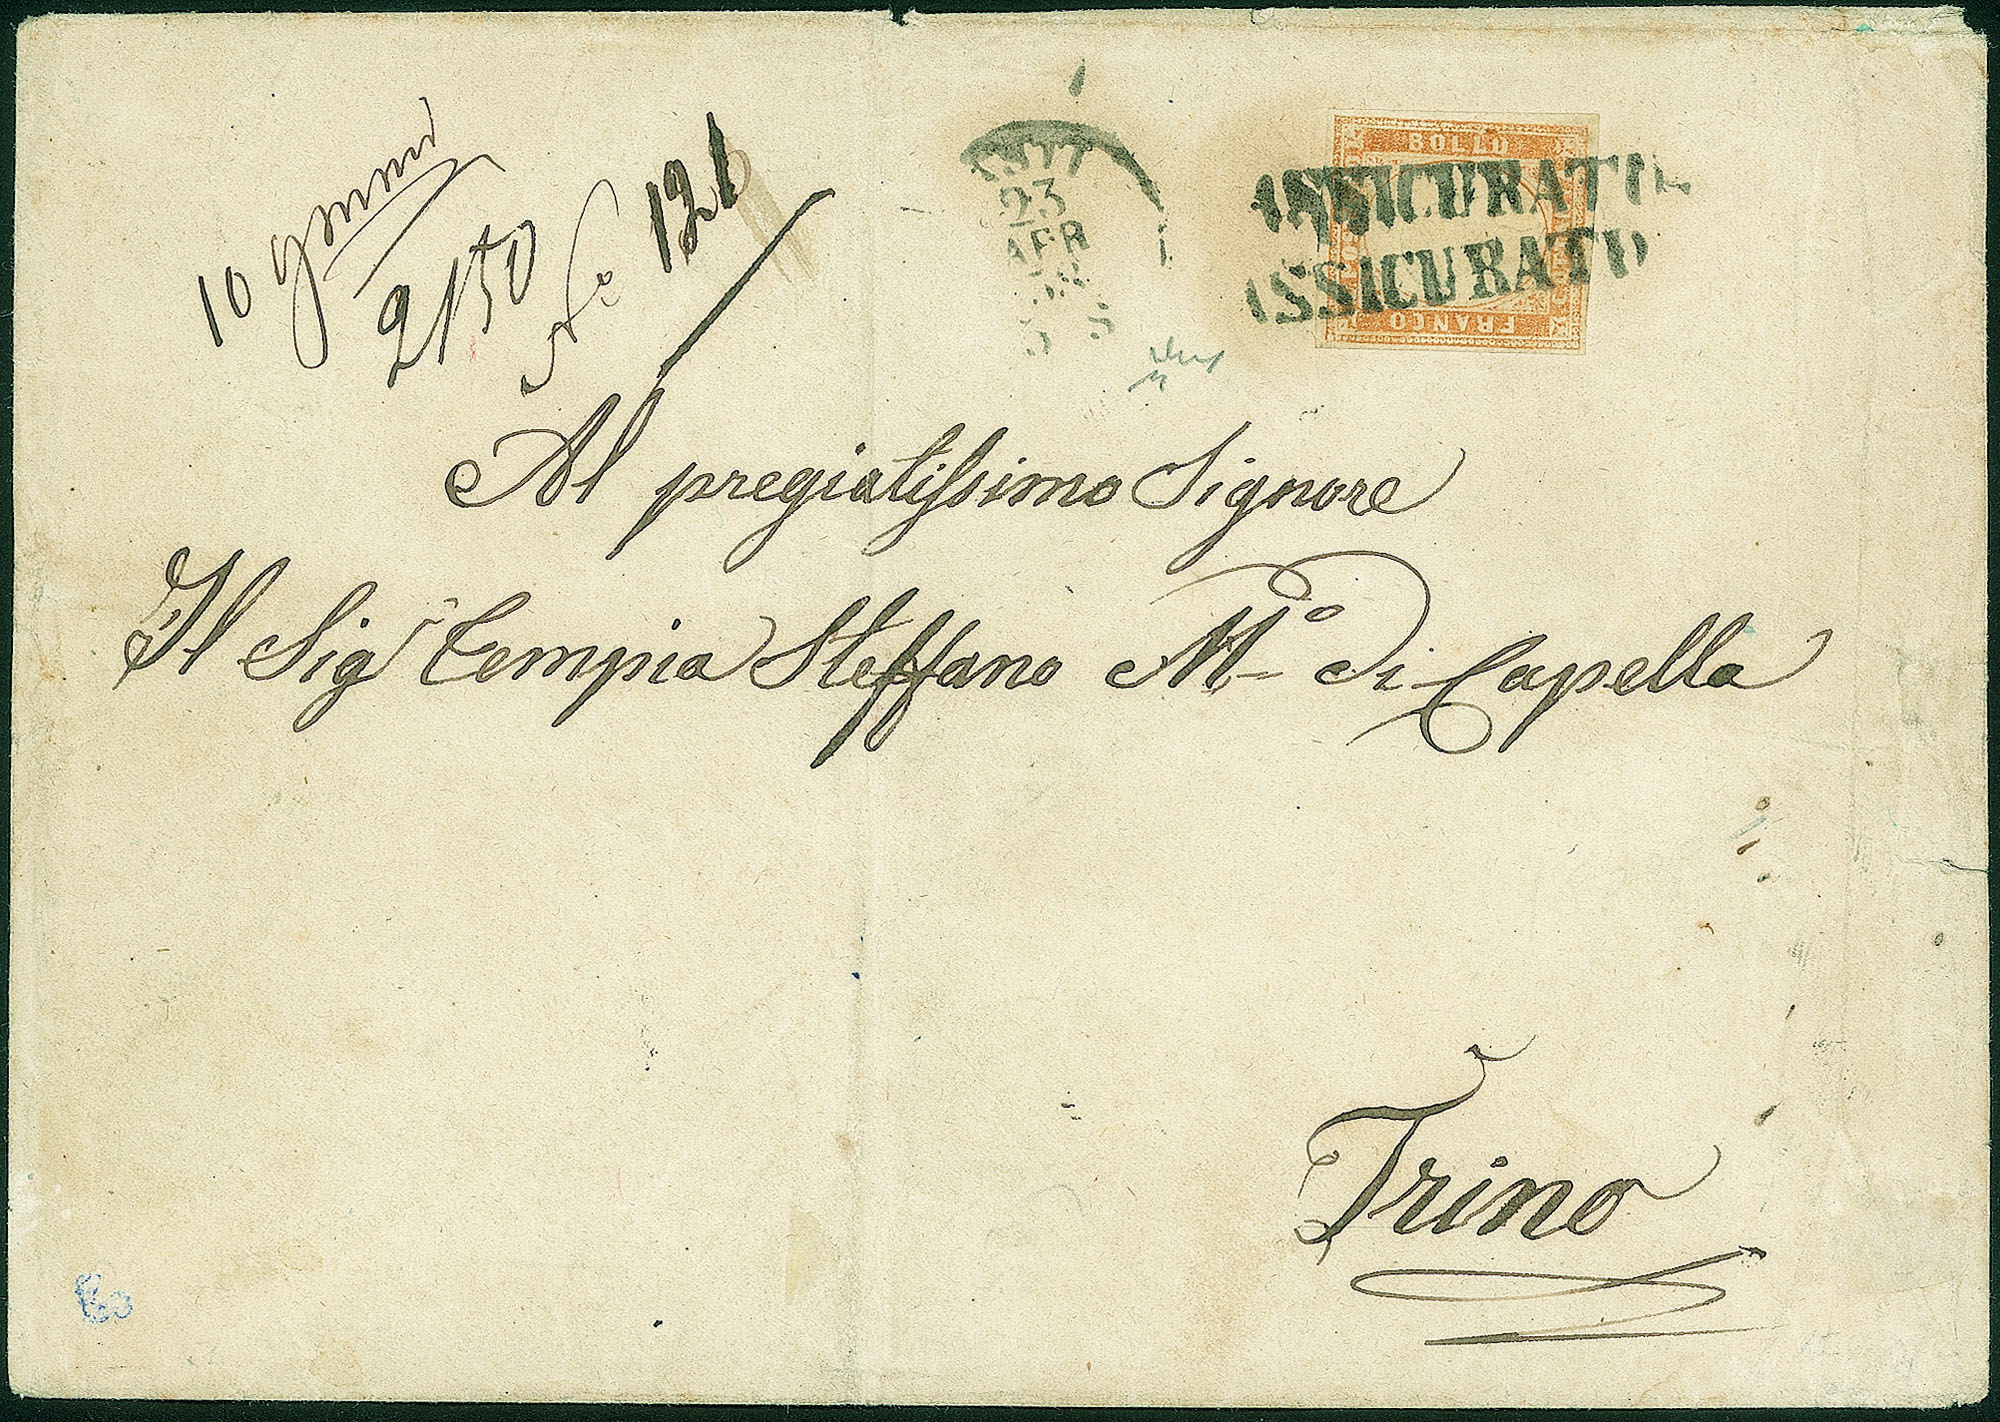 10 grammi
2150
No 121
ASTI
23
APR
BOLLO
FRANCO
ASSICURATO
ASSICURATO
Al pregiatissimo Signore
Il Sigr Tempia Steffano Mo di Capella
Trino